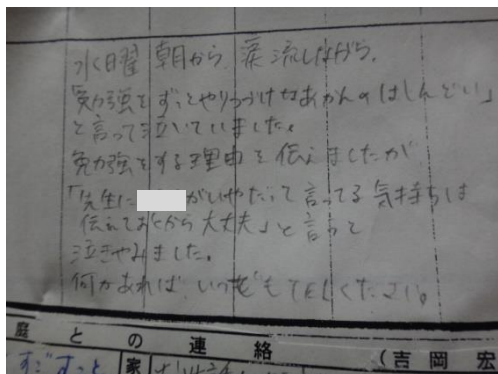 水曜 朝から、涙流しながら、
勉強をずっとやりつづけなあかんのはしんどい」
と言って泣いていました。
勉強をする理由を伝えましたが
「先生に がいやだって言ってる気持ちは
伝えておくから大丈夫」と言って
泣きやみました。
何かあれば、いつでもTELください。
庭との連絡 (吉岡宏
すごすっと 家